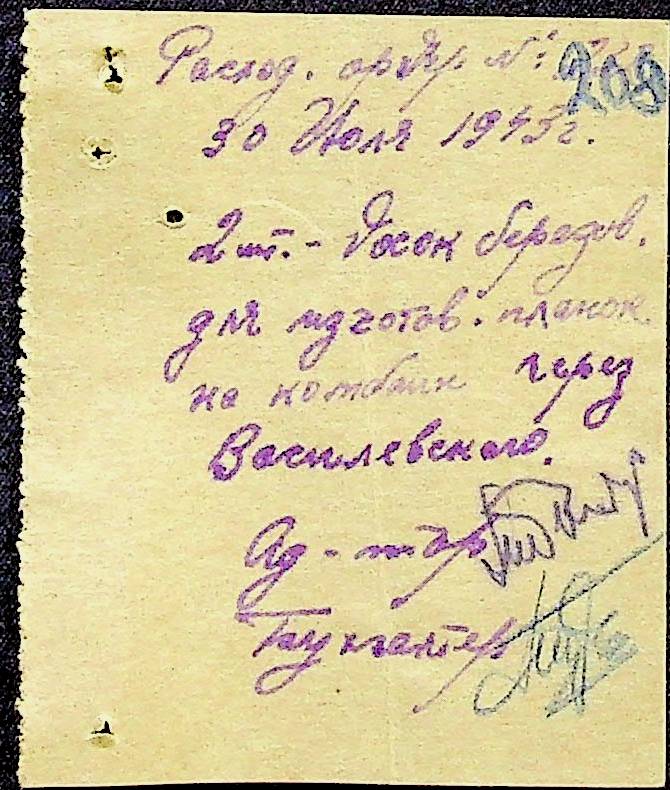 Расход. ордер № 208
30 Июля 1945г.
2 шт. - Досок берёзов.
для изготов. планок
на комбайн через
Василевского.
Ад-тор
Бухгалтер